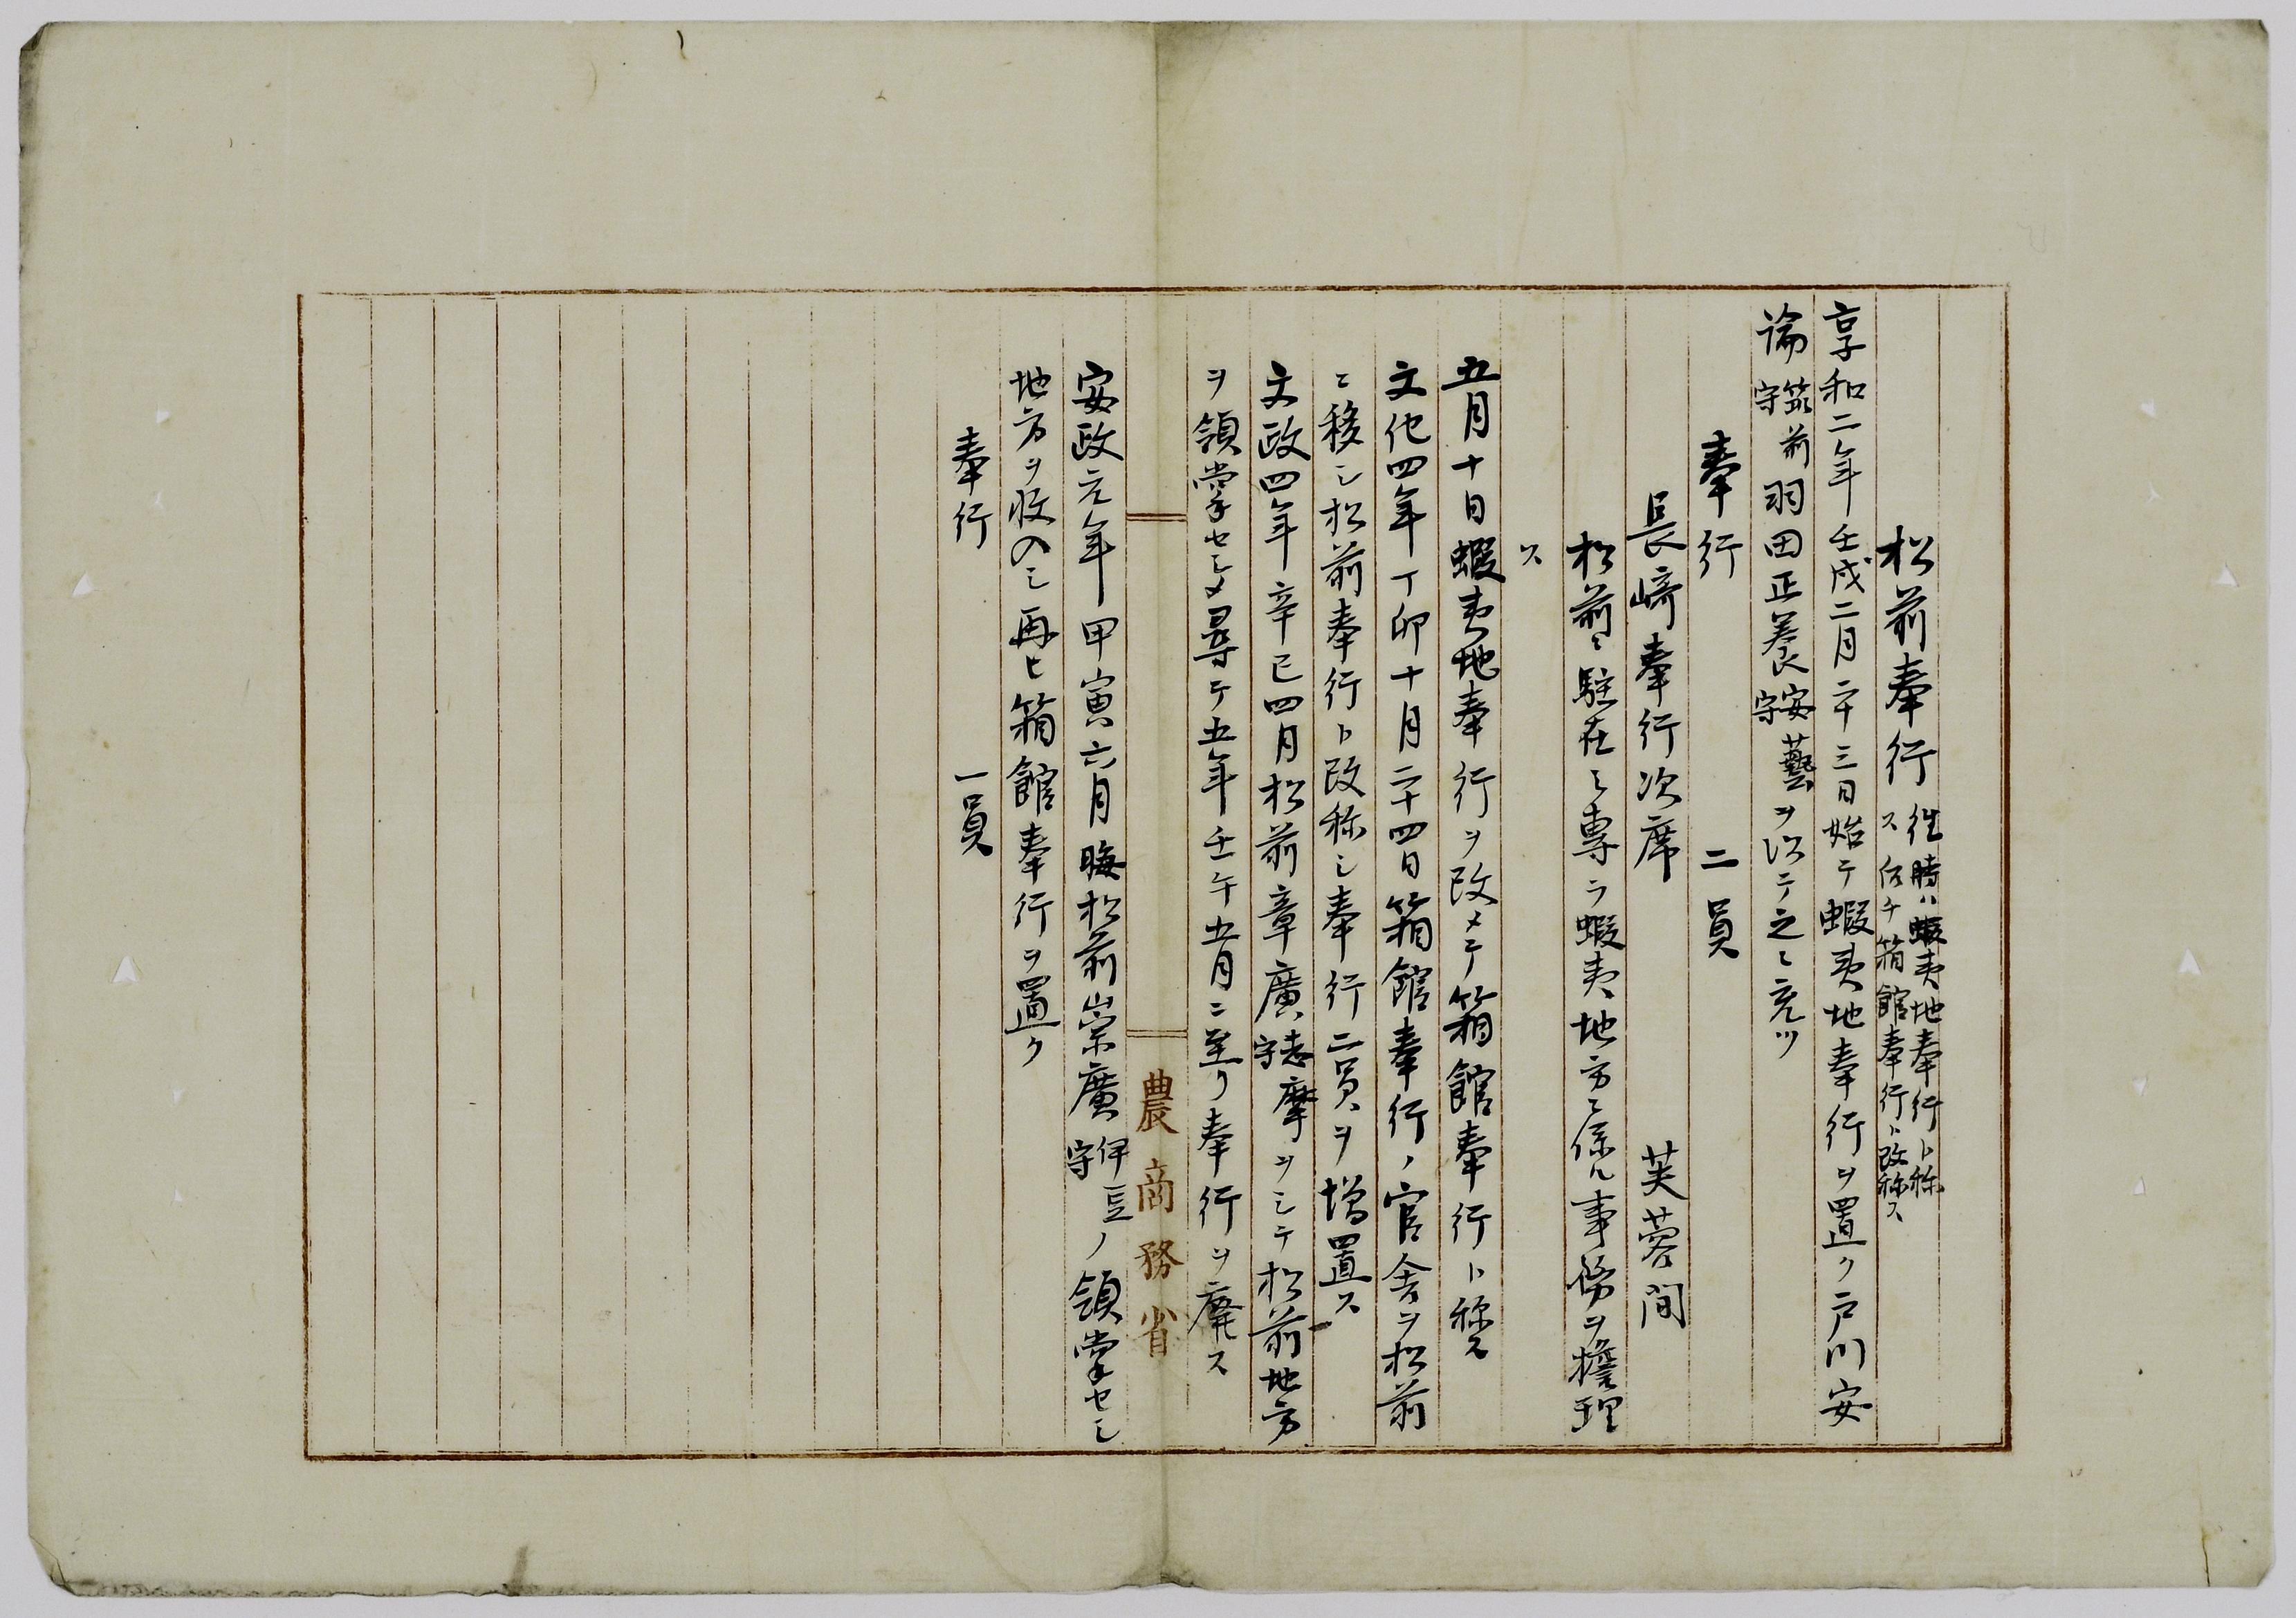 松前奉行 往時ハ蝦夷地奉行ト称
ス 後チ箱館奉行ト改称ス
享和二年壬戌二月二十三日始テ蝦夷地奉行ヲ置ク戸川安
論筑前守羽田正養安藝守ヲ以テ之ニ充ツ
奉行 二員
長崎奉行次席 芙蓉間
松前ニ駐在シ専ラ蝦夷地方ニ係ル事務ヲ擔理
ス
五月十日蝦夷地奉行ヲ改メテ箱館奉行ト称ス
文化四年丁卯十月二十四日箱館奉行ノ官舎ヲ松前
ニ移シ松前奉行ト改称シ奉行二員ヲ増置ス
文政四年辛巳四月松前章廣志摩守ヲシテ松前地方
ヲ領掌セシメ尋テ五年壬午五月ニ至リ奉行ヲ廃ス
農商務省
安政元年甲寅六月晦松前崇廣伊豆守ノ領掌セシ
地方ヲ收入シ再ヒ箱館奉行ヲ置ク
奉行 一員